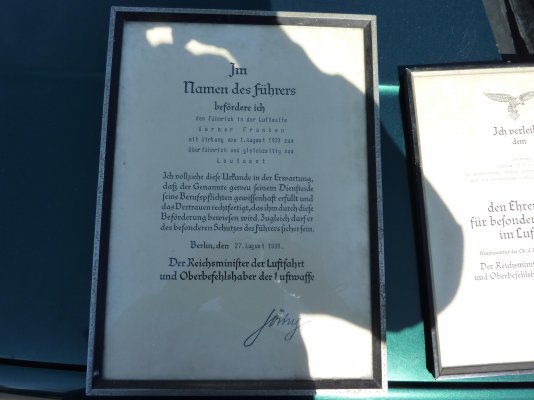 Im
Namen des Führers
befördere ich
den Fähnrich in der Luftwaffe
Werner Franken
mit Wirkung vom 1.August 1939 zum
Oberfähnrich und gleichzeitig zum
Leutnant
Ich vollziehe diese Urkunde in der Erwartung,
daß der Genannte getreu seinem Diensteide
seine Berufspflichten gewissenhaft erfüllt und
das Vertrauen rechtfertigt, das ihm durch diese
Beförderung bewiesen wird. Zugleich darf er
des besonderen Schutzes des Führers sicher sein.
Berlin, den 27.August 1939.
Der Reichsminister der Luftfahrt
und Oberbefehlshaber der Luftwaffe
Göring
Ich verleih
dem
den Ehren
für besonder
im Luf
Der Reichsminis
und Oberbefehlsha